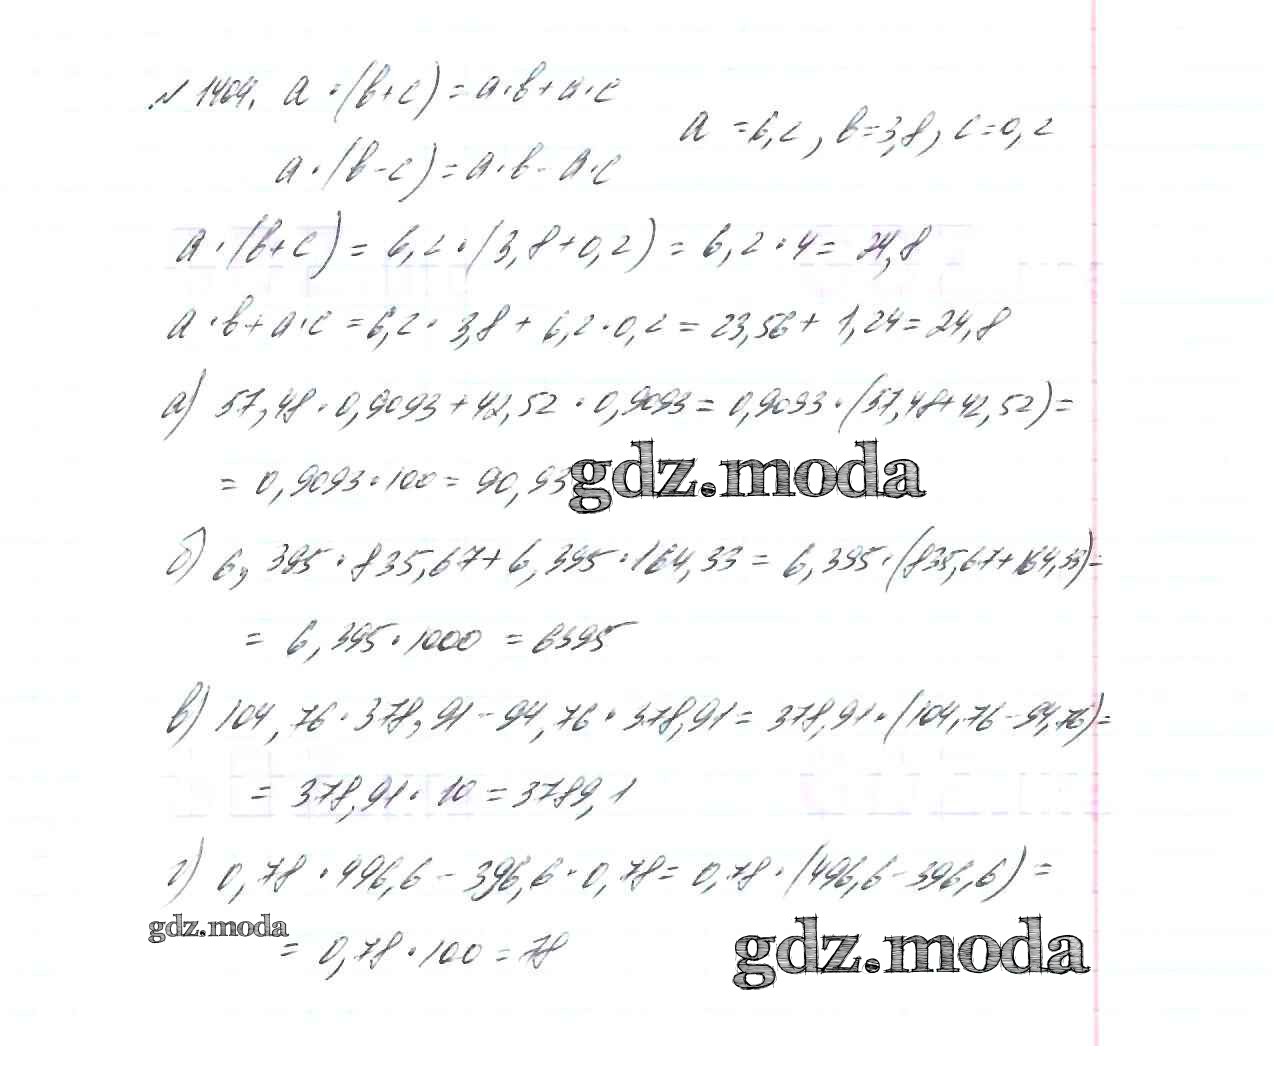 № 1404. a · (b+c) = a·b + a·c
a = 6,2, b=3,8, c=0,2
a · (b-c) = a·b - a·c
a · (b+c) = 6,2 · (3,8+0,2) = 6,2 · 4 = 24,8
a · b + a · c = 6,2 · 3,8 + 6,2 · 0,2 = 23,56 + 1,24 = 24,8
а) 57,48 · 0,9093 + 42,52 · 0,9093 = 0,9093 · (57,48+42,52) =
= 0,9093 · 100 = 90,93
gdz.moda
б) 6,395 · 835,67 + 6,395 · 164,33 = 6,395 · (835,67+164,33) =
= 6,395 · 1000 = 6395
в) 104,76 · 378,91 - 94,76 · 378,91 = 378,91 · (104,76 - 94,76) =
= 378,91 · 10 = 3789,1
г) 0,78 · 496,6 - 396,6 · 0,78 = 0,78 · (496,6 - 396,6) =
gdz.moda
= 0,78 · 100 = 78
gdz.moda